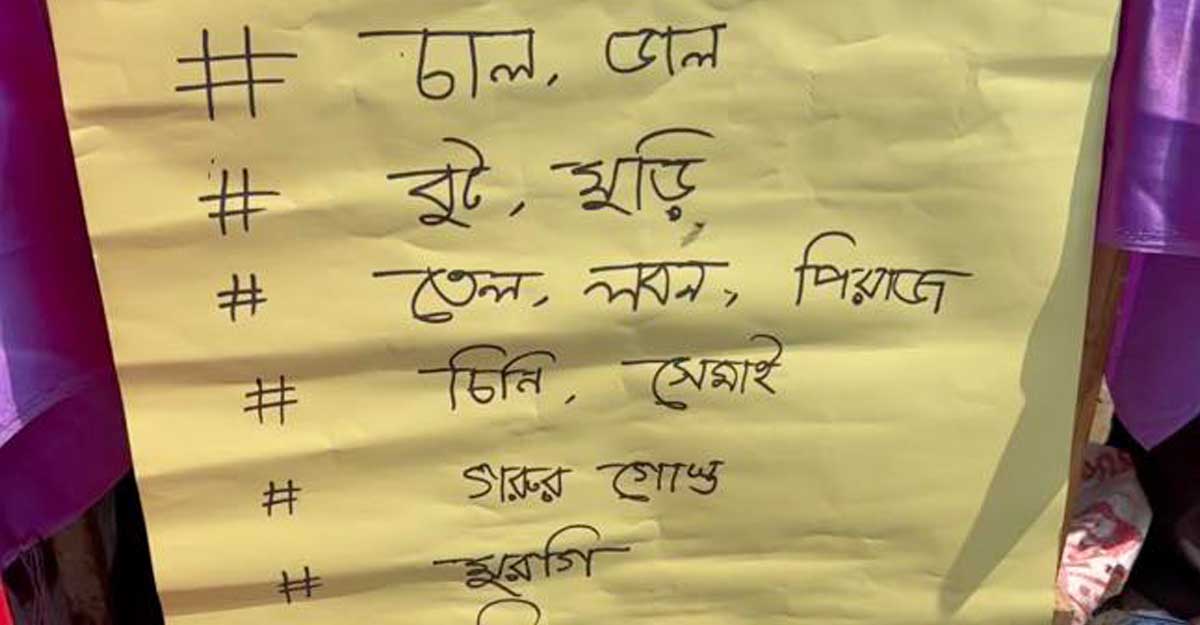 # চাল, ডাল
# বুট, মুড়ি
# তেল, লবন, পিয়াজ
# চিনি, সেমাই
# গরুর গোস্ত
# মুরগি